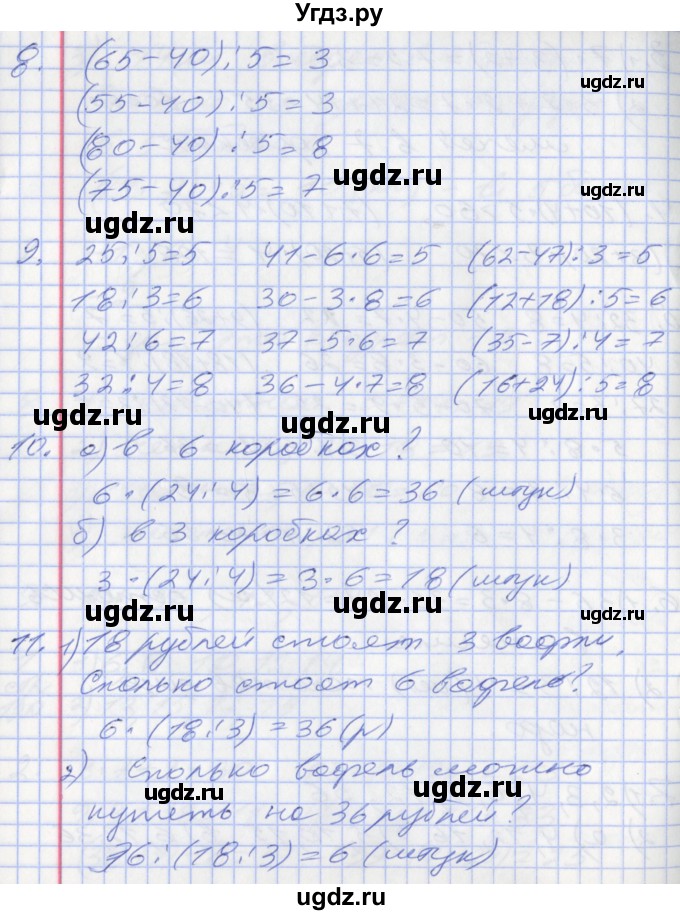 Угдз.ру
8. (65-40):5=3
ugdz.ru
(55-40):5=3
(80-40):5=8
ugdz.ru
(75-40):5=7
ugdz.ru
ugdz.ru
9. 25:5=5 41-6·6=5 (62-47):3=5
18:3=6 30-3·8=6 (12+18):5=6
ugdz.ru
42:6=7 37-5·6=7 (35-7):4=7
32:4=8 36-4·7=8 (16+24):5=8
ugdz.ru ugdz.ru ugdz.ru
10. а) в 6 коробках?
6·(24:4)=6·6=36 (штук)
ugdz.ru
б) в 3 коробках?
3·(24:4)=3·6=18 (штук)
ugdz.ru ugdz.ru
11. 1) 18 рублей стоят 3 вафли.
ugdz.ru
Сколько стоят 6 вафель?
6·(18:3)=36(р)
ugdz.ru
2) Сколько вафель можно
ugdz.ru ugdz.ru
купить на 36 рублей?
36:(18:3)=6 (штук)
ugdz.ru
ugdz.ru